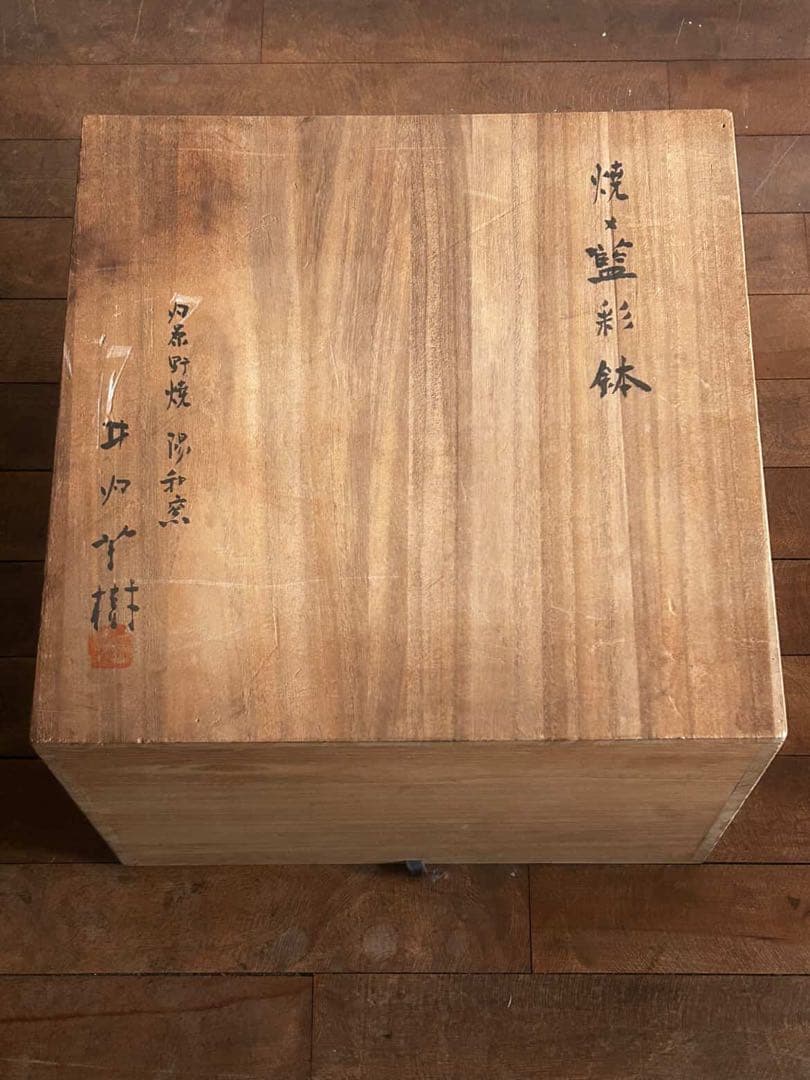 焼〆藍彩鉢
内原野焼 陽和窯
井内芳樹